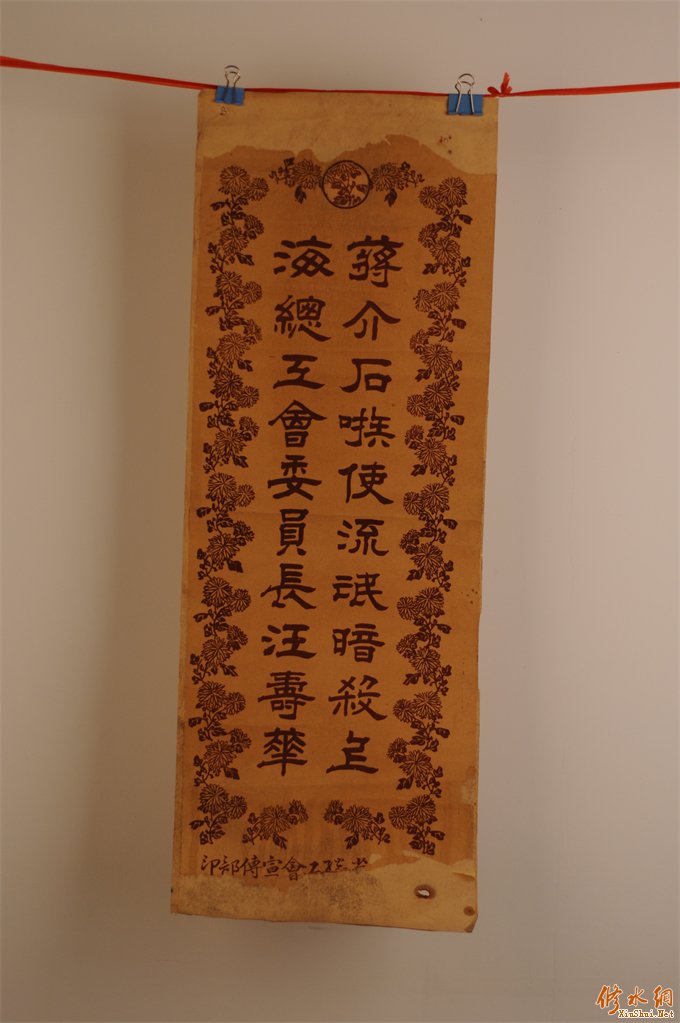 蔣介石嗾使流氓暗殺上
海總工會委員長汪壽華
工會宣傳部印
修水網
XiuShui.Net